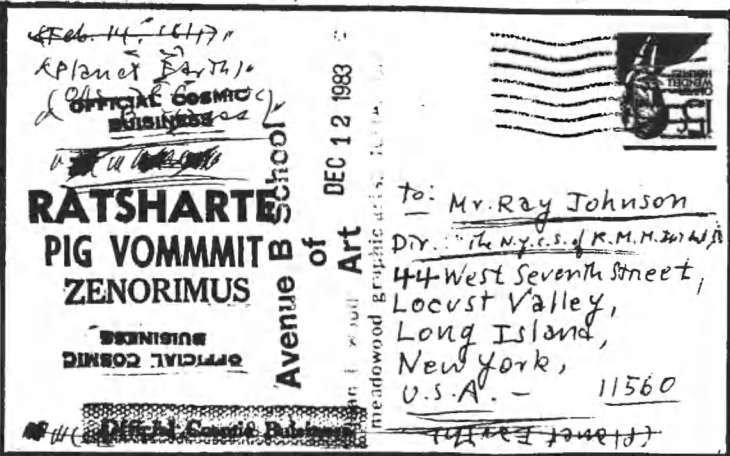 Feb. 14,
(Planet Earth)
OFFICIAL COSMIC
BUISINESS
RATSHARTE
PIG VOMMMIT
ZENORIMUS
OFFICIAL COSMIC
BUISINESS
Official Cosmic Buisiness
Avenue B School
of
Art
DEC 12 1983
meadowood graphic
OLIVER
WENDELL
HOLMES
15¢
to: Mr. Ray Johnson
Dir. The N.Y.C.S. of
44 West Seventh Street,
Locust Valley,
Long Island,
New York,
U.S.A. - 11560
(Planet Earth)